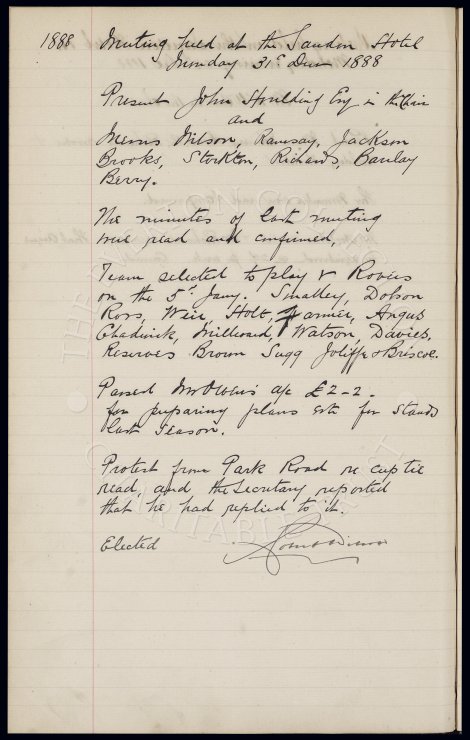 1888 Meeting held at the Sandon Hotel
Monday 31st Decr 1888
Present John Houlding Esq in the Chair
and
Messrs Wilson, Ramsay, Jackson
Brooks, Stockton, Richards, Barclay
Berry.
The minutes of last meeting
were read and confirmed,
Team selected to play v Rovers
on the 5th Jany. Smalley, Dobson
Ross, Weir, Holt, Farmer, Angus
Chadwick, Milward, Watson, Davies.
Reserves Brown Sugg Joliffe & Briscoe.
Passed Mr Owens a/c £2-2-
for preparing plans &c for Stands
last season.
Protest from Park Road re cup tie
read, and the Secretary reported
that he had replied to it.
Elected